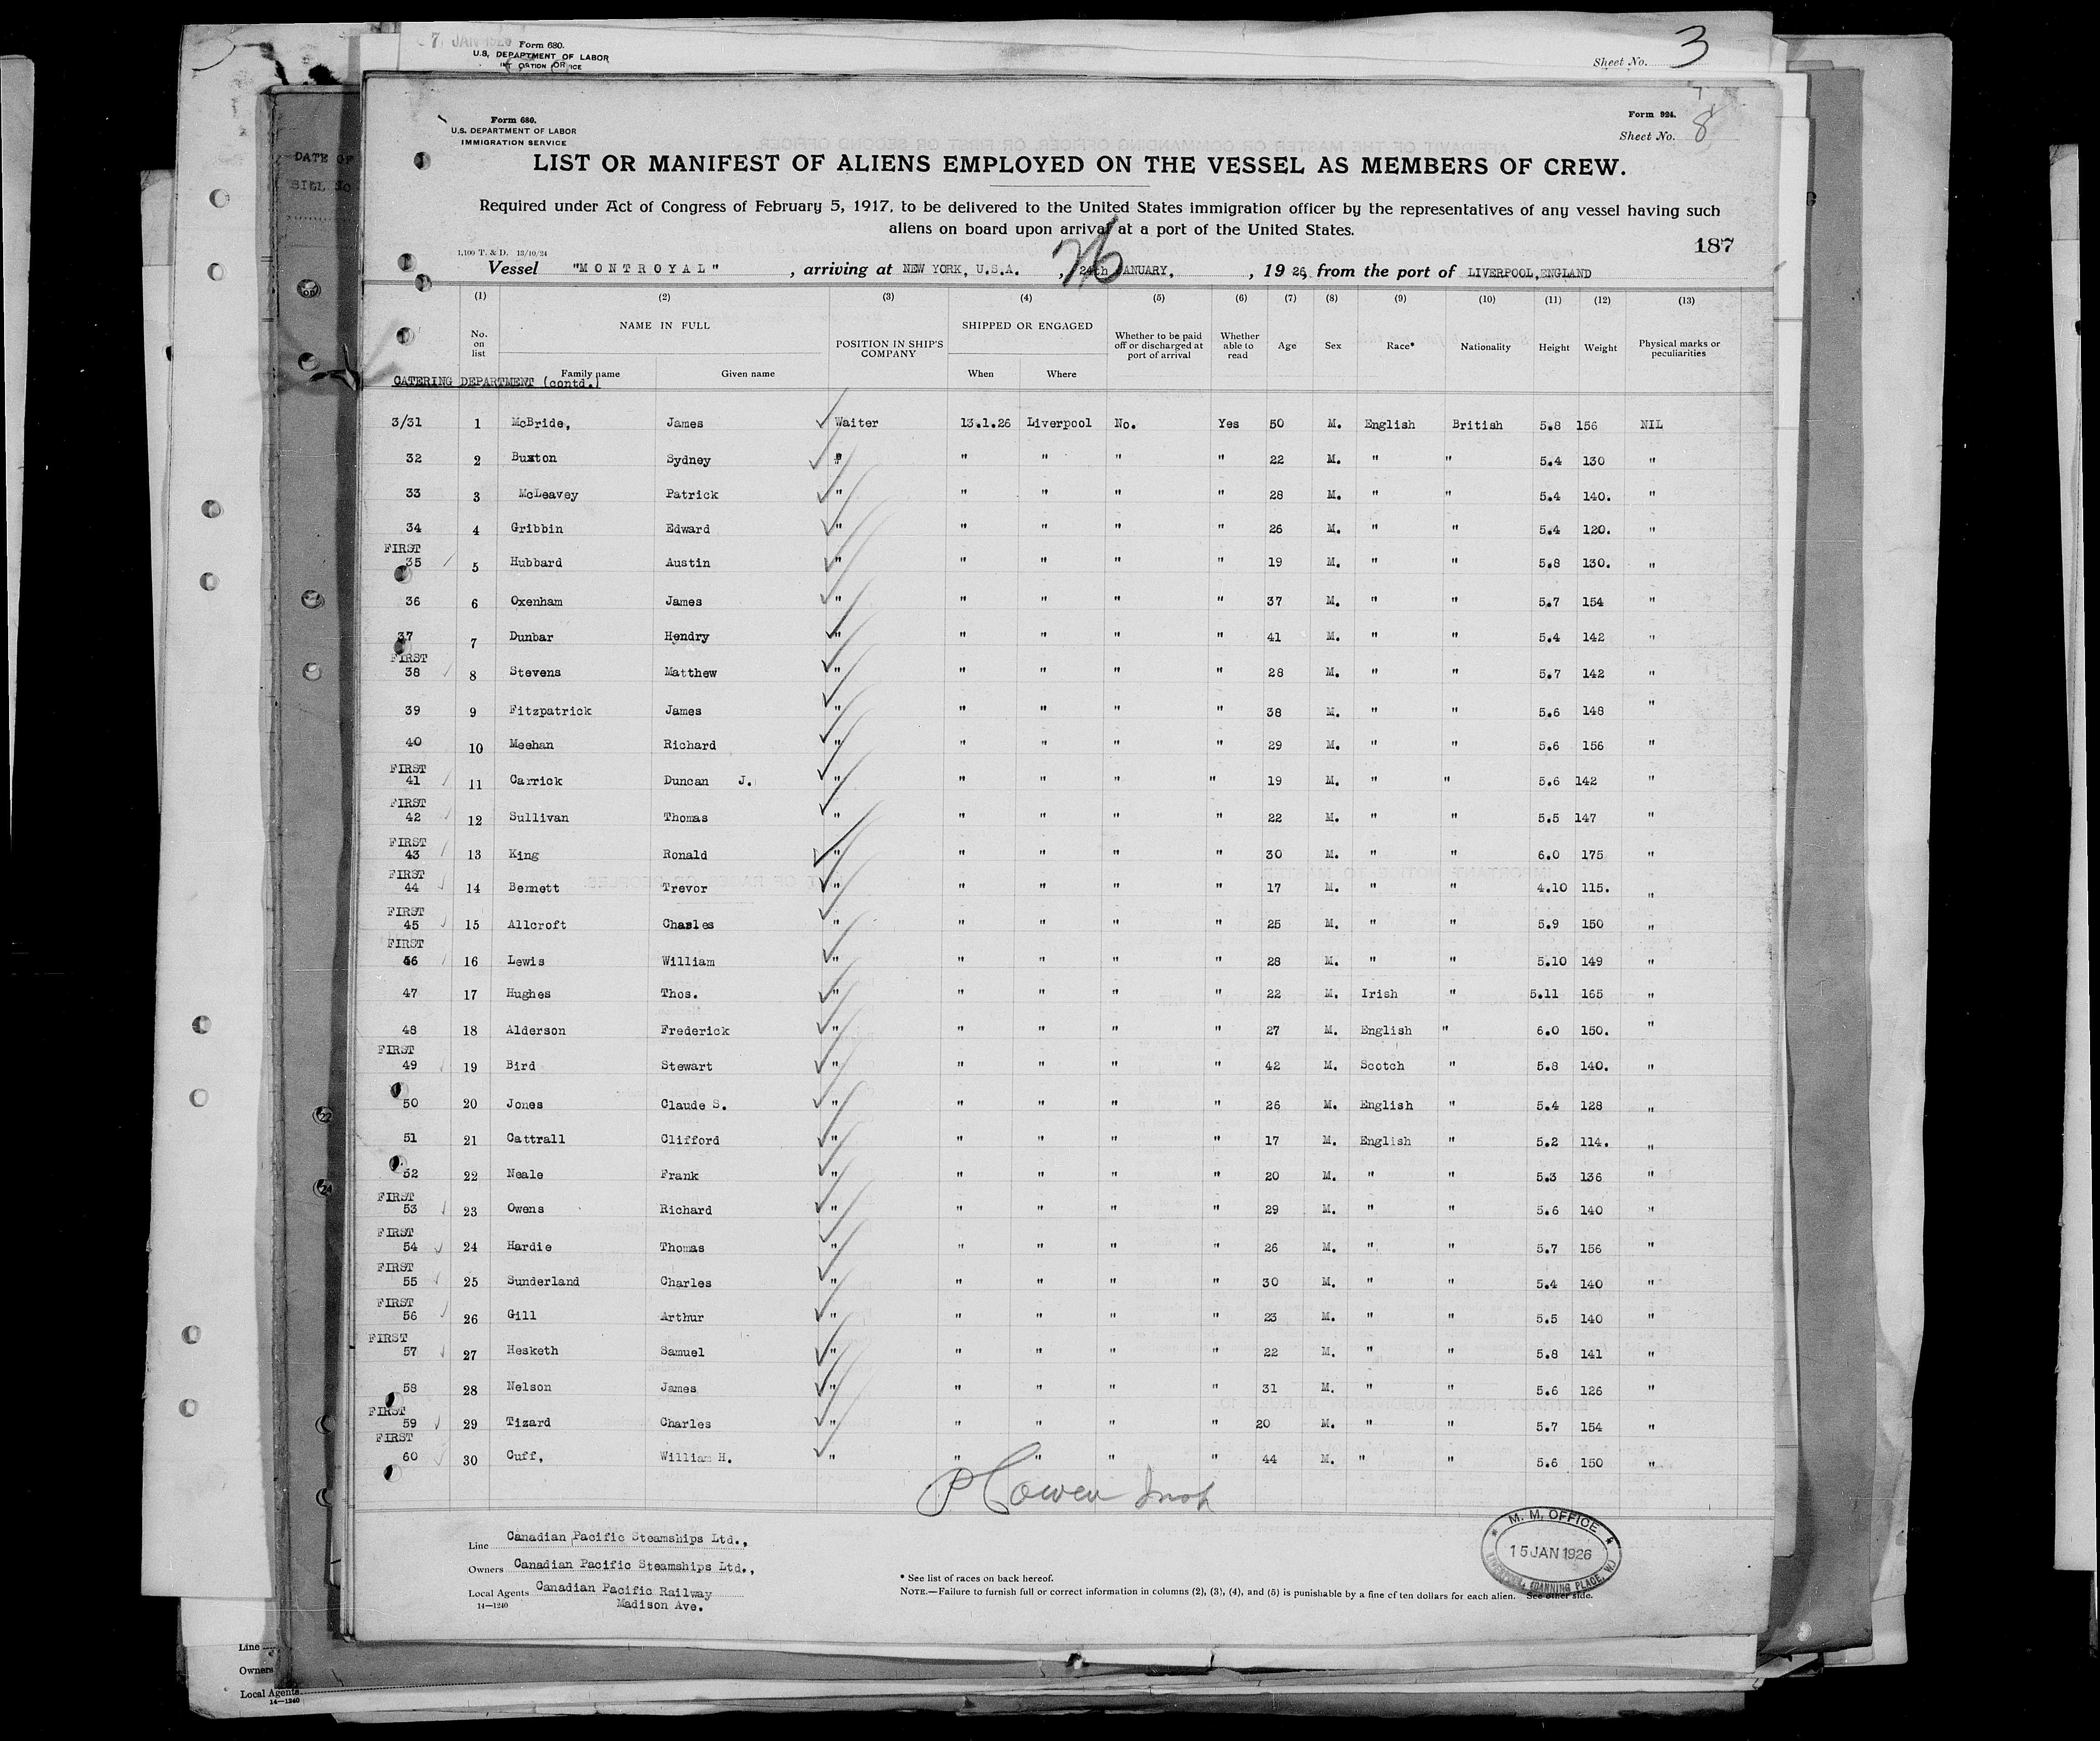 7 JAN 1926 Form 680.
U.S. DEPARTMENT OF LABOR
Sheet No. 3
Form 680.
U.S. DEPARTMENT OF LABOR
IMMIGRATION SERVICE
Form 924.
Sheet No. 8
DATE OF
BILL NO
LIST OR MANIFEST OF ALIENS EMPLOYED ON THE VESSEL AS MEMBERS OF CREW.
Required under Act of Congress of February 5, 1917, to be delivered to the United States immigration officer by the representatives of any vessel having such
aliens on board upon arrival at a port of the United States.
187
1,100 T. & D. 13/10/24
Vessel "MONTROYAL", arriving at NEW YORK, U.S.A., 26 24th JANUARY, , 19 26, from the port of LIVERPOOL, ENGLAND
(1) (2) (3) (4) (5) (6) (7) (8) (9) (10) (11) (12) (13)
No. on list NAME IN FULL Family name Given name POSITION IN SHIP'S COMPANY SHIPPED OR ENGAGED When Where Whether to be paid off or discharged at port of arrival Whether able to read Age Sex Race* Nationality Height Weight Physical marks or peculiarities
CATERING DEPARTMENT (contd.)
3/31 1 McBride, James Waiter 13.1.26 Liverpool No. Yes 50 M. English British 5.8 156 NIL
32 2 Buxton Sydney " " " " " 22 M. " " 5.4 130 "
33 3 McLeavey Patrick " " " " " 28 M. " " 5.4 140. "
34 4 Gribbin Edward " " " " " 26 M. " " 5.4 120. "
FIRST
35 5 Hubbard Austin " " " " " 19 M. " " 5.8 130. "
36 6 Oxenham James " " " " " 37 M. " " 5.7 154 "
37 7 Dunbar Hendry " " " " " 41 M. " " 5.4 142 "
FIRST
38 8 Stevens Matthew " " " " " 28 M. " " 5.7 142 "
39 9 Fitzpatrick James " " " " " 38 M. " " 5.6 148 "
40 10 Meehan Richard " " " " " 29 M. " " 5.6 156 "
FIRST
41 11 Carrick Duncan J. " " " " " 19 M. " " 5.6 142 "
FIRST
42 12 Sullivan Thomas " " " " " 22 M. " " 5.5 147 "
FIRST
43 13 King Ronald " " " " " 30 M. " " 6.0 175 "
FIRST
44 14 Bennett Trevor " " " " " 17 M. " " 4.10 115. "
FIRST
45 15 Allcroft Charles " " " " " 25 M. " " 5.9 150 "
FIRST
46 16 Lewis William " " " " " 28 M. " " 5.10 149 "
47 17 Hughes Thos. " " " " " 22 M. Irish " 5.11 165 "
48 18 Alderson Frederick " " " " " 27 M. English " 6.0 150. "
FIRST
49 19 Bird Stewart " " " " " 42 M. Scotch " 5.8 140. "
50 20 Jones Claude S. " " " " " 26 M. English " 5.4 128 "
51 21 Cattrall Clifford " " " " " 17 M. English " 5.2 114. "
52 22 Neale Frank " " " " " 20 M. " " 5.3 136 "
FIRST
53 23 Owens Richard " " " " " 29 M. " " 5.6 140 "
FIRST
54 24 Hardie Thomas " " " " " 26 M. " " 5.7 156 "
FIRST
55 25 Sunderland Charles " " " " " 30 M. " " 5.4 140 "
FIRST
56 26 Gill Arthur " " " " " 23 M. " " 5.5 140 "
FIRST
57 27 Hesketh Samuel " " " " " 22 M. " " 5.8 141 "
58 28 Nelson James " " " " " 31 M. " " 5.6 126 "
FIRST
59 29 Tizard Charles " " " " " 20 M. " " 5.7 154 "
FIRST
60 30 Cuff, William H. " " " " " 44 M. " " 5.6 150 "
Line Canadian Pacific Steamships Ltd.,
Owners Canadian Pacific Steamships Ltd.,
Local Agents Canadian Pacific Railway
14—1240 Madison Ave.
* See list of races on back hereof.
NOTE.—Failure to furnish full or correct information in columns (2), (3), (4), and (5) is punishable by a fine of ten dollars for each alien. See other side.
M. M. OFFICE
15 JAN 1926
CANNING PLACE
Line
Owners
Local Agents
14—1240